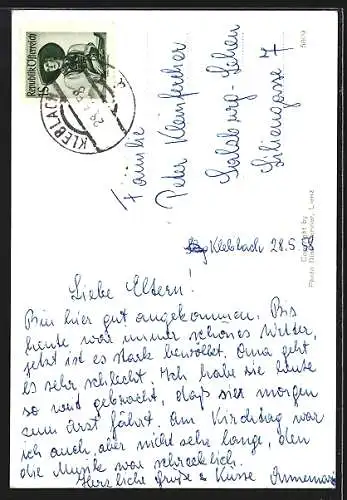 Republik Österreich
1S
KLEBLACH
Familie
Peter Kleinfercher
Salzburg-Lehen
Siliengasse 7
5809
Copyright by
Lienz
Kleblach 28.5.
Liebe Eltern!
Bin hier gut angekommen. Bis
heute war immer schönes Wetter,
jetzt ist es stark bewölkt. Oma geht
es sehr schlecht. Ich habe sie heute
so weit gebracht, daß sie morgen
zum Arzt fährt. Am Kirchtag war
ich auch, aber nicht sehr lange, den
die Musik war schrecklich.
Herzliche Grüße & Küsse Annemarie